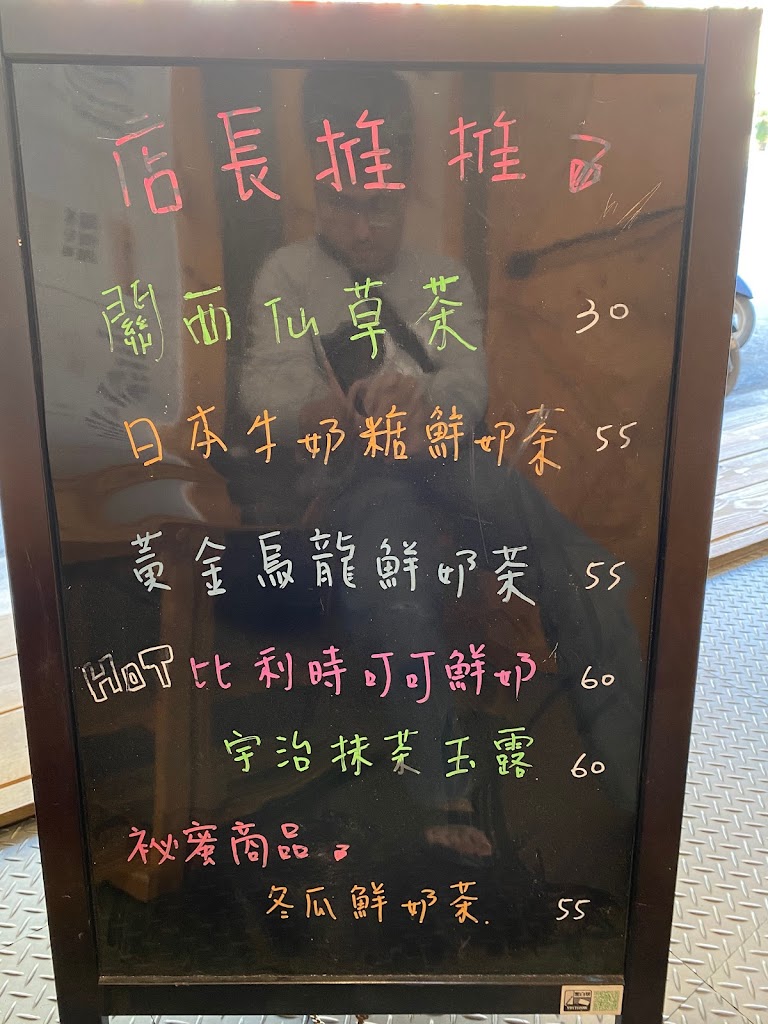 店長推推
關西仙草茶 30
日本牛奶糖鮮奶茶 55
黃金烏龍鮮奶茶 55
HOT 比利時叮叮鮮奶 60
宇治抹茶玉露 60
祕蜜商品。
冬瓜鮮奶茶. 55